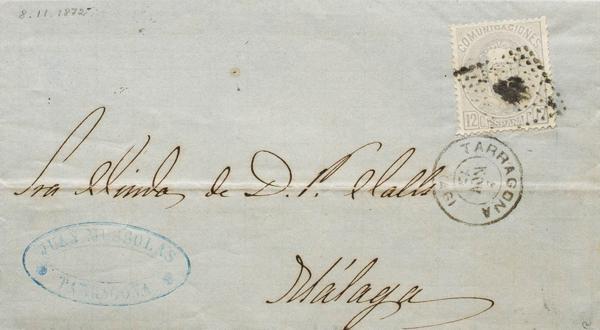 8.11.1872
COMUNICACIONES
12 C. ESPAÑA
TARRAGONA
NOV
Sra Viuda de D. P. Valls
JUAN MUSOLAS
TARRAGONA
Málaga